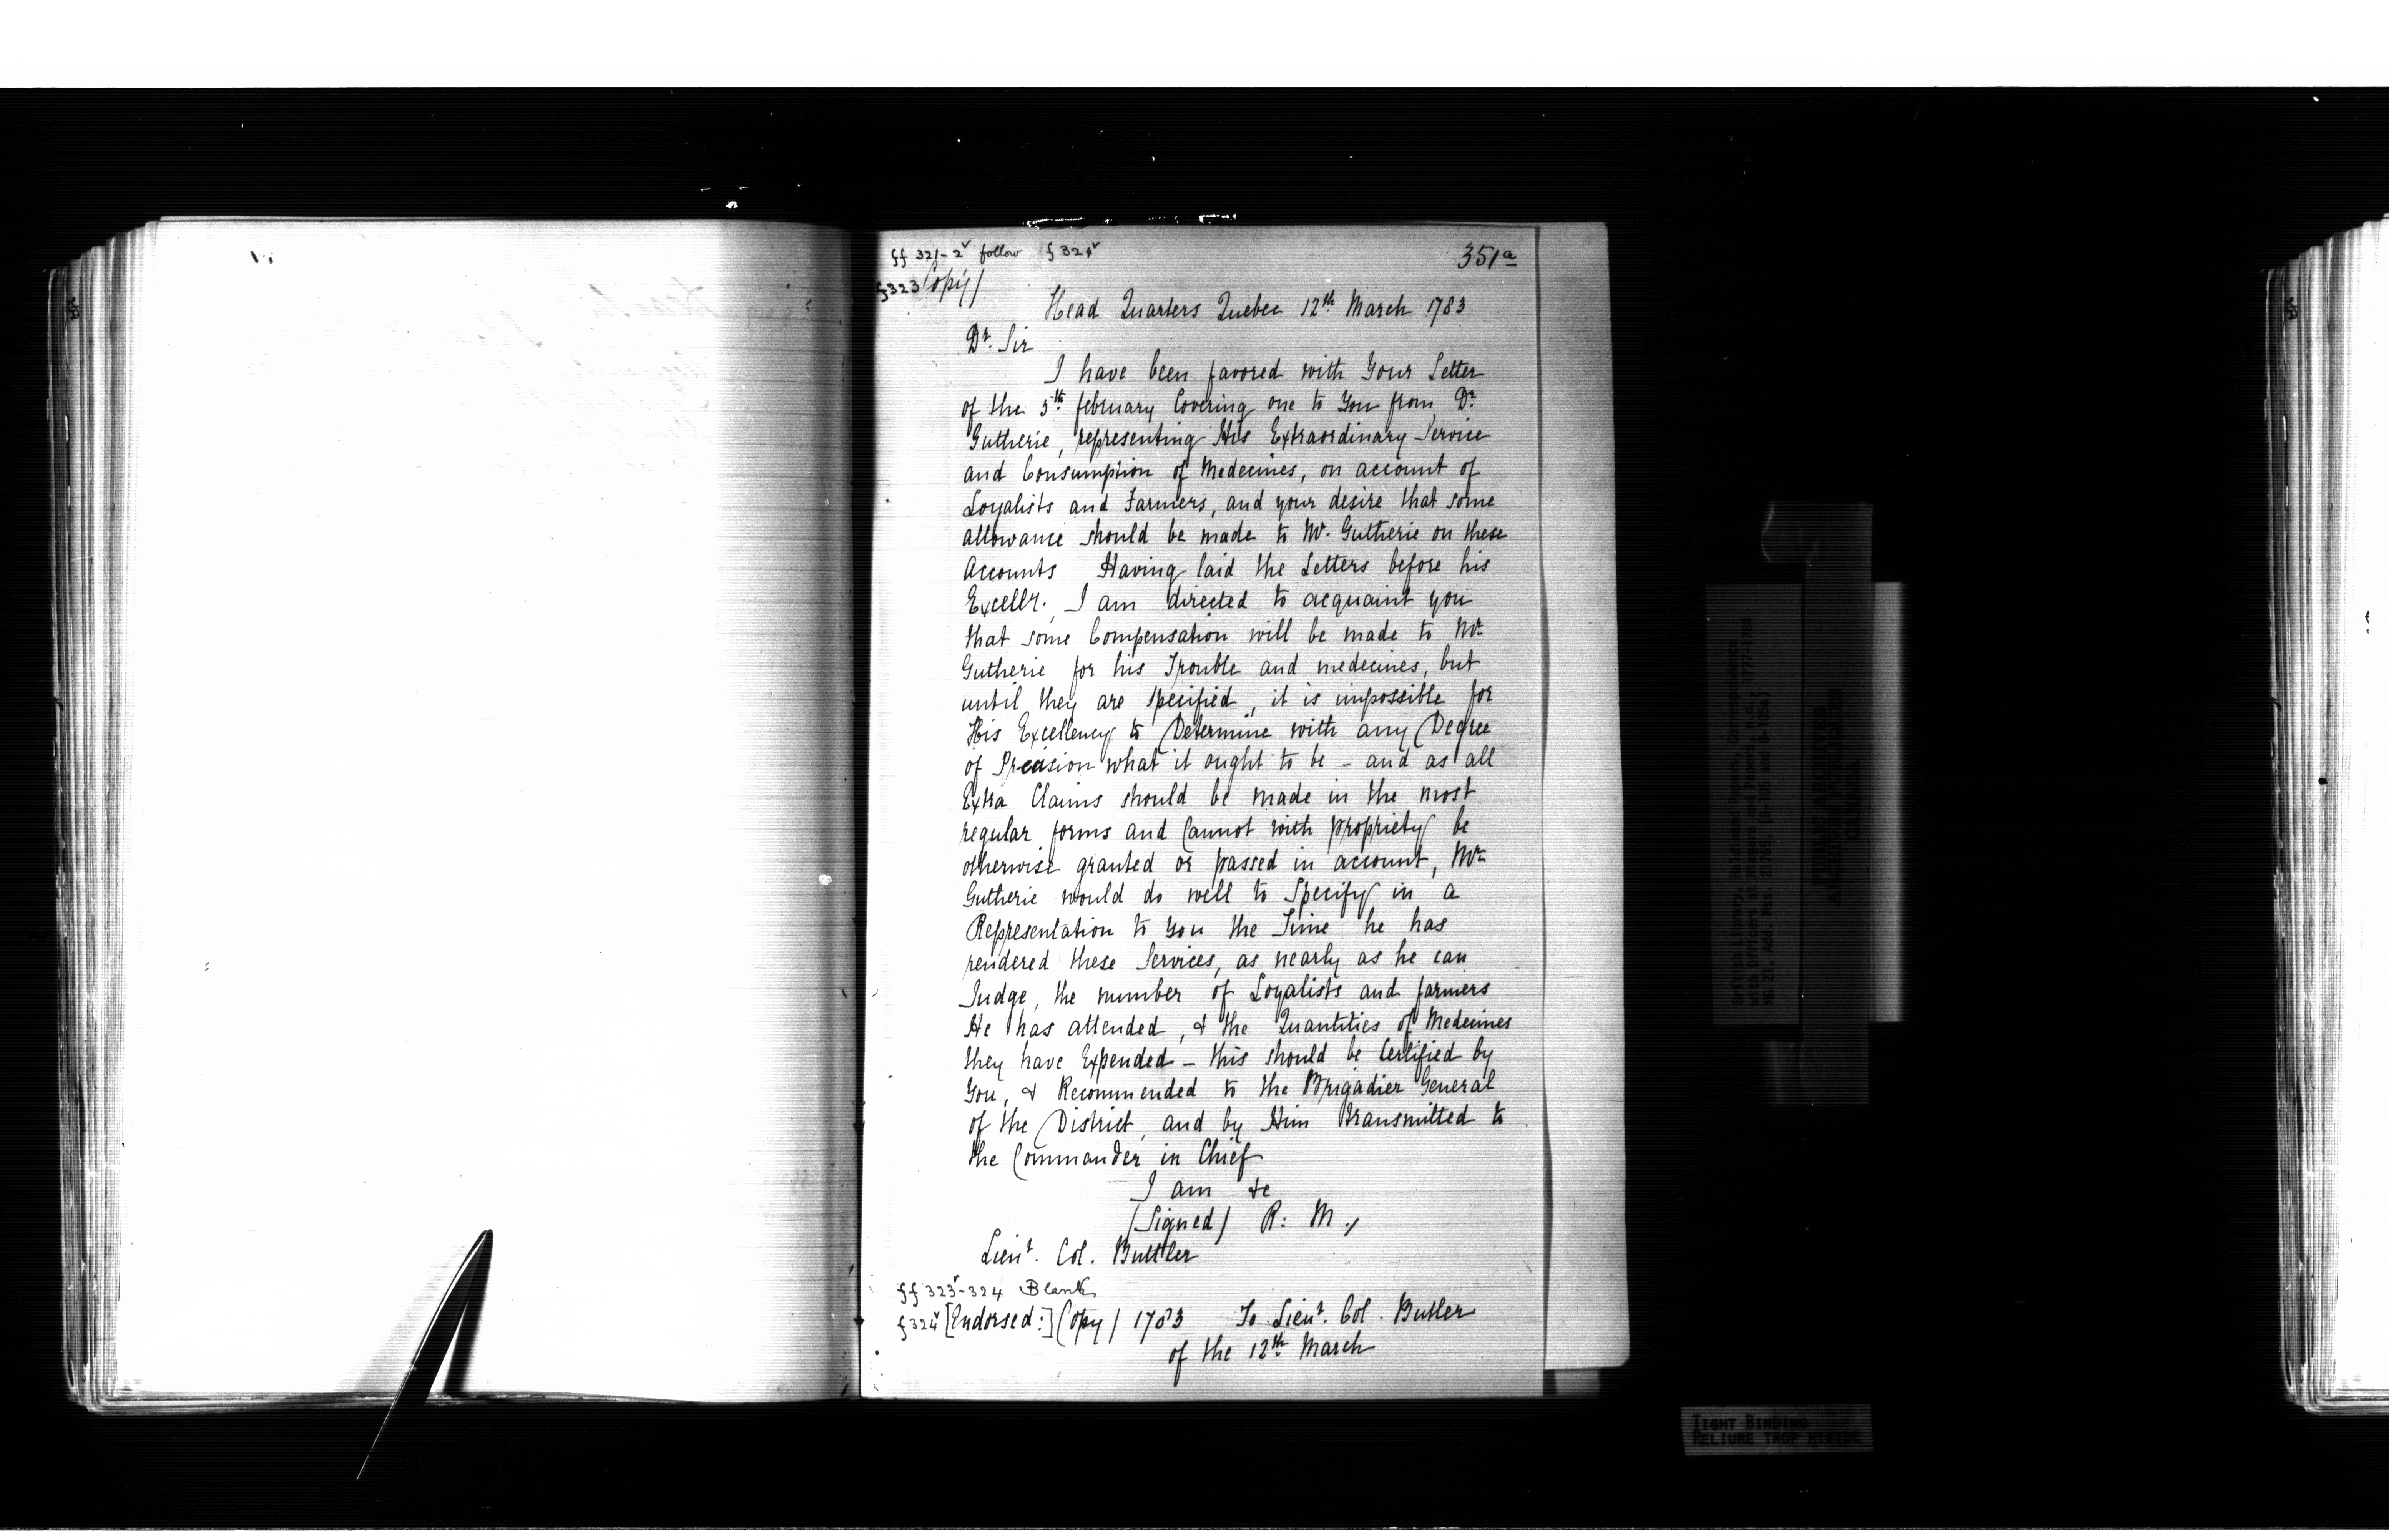 ff 321-2v follow f 324v
351a
f323 Copy/
Head Quarters Quebec 12th March 1783
Dr. Sir
I have been favored with Your Letter
of the 5th february Covering one to You from Dr.
Gutherie, representing His Extraordinary Service
and Consumption of Medecines, on account of
Loyalists and Farmers, and your desire that some
allowance should be made to Mr. Gutherie on these
Accounts Having laid the Letters before his
Excelly. I am directed to acquaint you
that some Compensation will be made to Mr.
Gutherie for his Trouble and medecines, but
until they are specified, it is impossible for
His Excellency to Determine with any Degree
of Precision what it ought to be - and as all
Extra Claims should be made in the most
regular forms and Cannot with propriety be
otherwise granted or passed in account, Mr.
Gutherie would do well to Specify in a
Representation to you the Time he has
rendered these Services, as nearly as he can
Judge, the number of Loyalists and farmers
He has attended, & the Quantities of Medecines
they have Expended - this should be Certified by
You, & Recommended to the Brigadier General
of the District, and by Him transmitted to
the Commander in Chief
I am &c
(Signed) R: M.,
Lieut. Col. Buttler
ff 323v-324 Blank
f 324v [Endorsed:] Copy / 1783 To Lieut. Col. Butler
of the 12th March
British Library, Haldimand Papers, Correspondence
with Officers at Niagara and Papers, n.d., 1777-1784
MG 21, Add. Mss. 21765, (B-105 and B-105a)
PUBLIC ARCHIVES
ARCHIVES PUBLIQUES
CANADA
TIGHT BINDING
RELIURE TROP RIGIDE